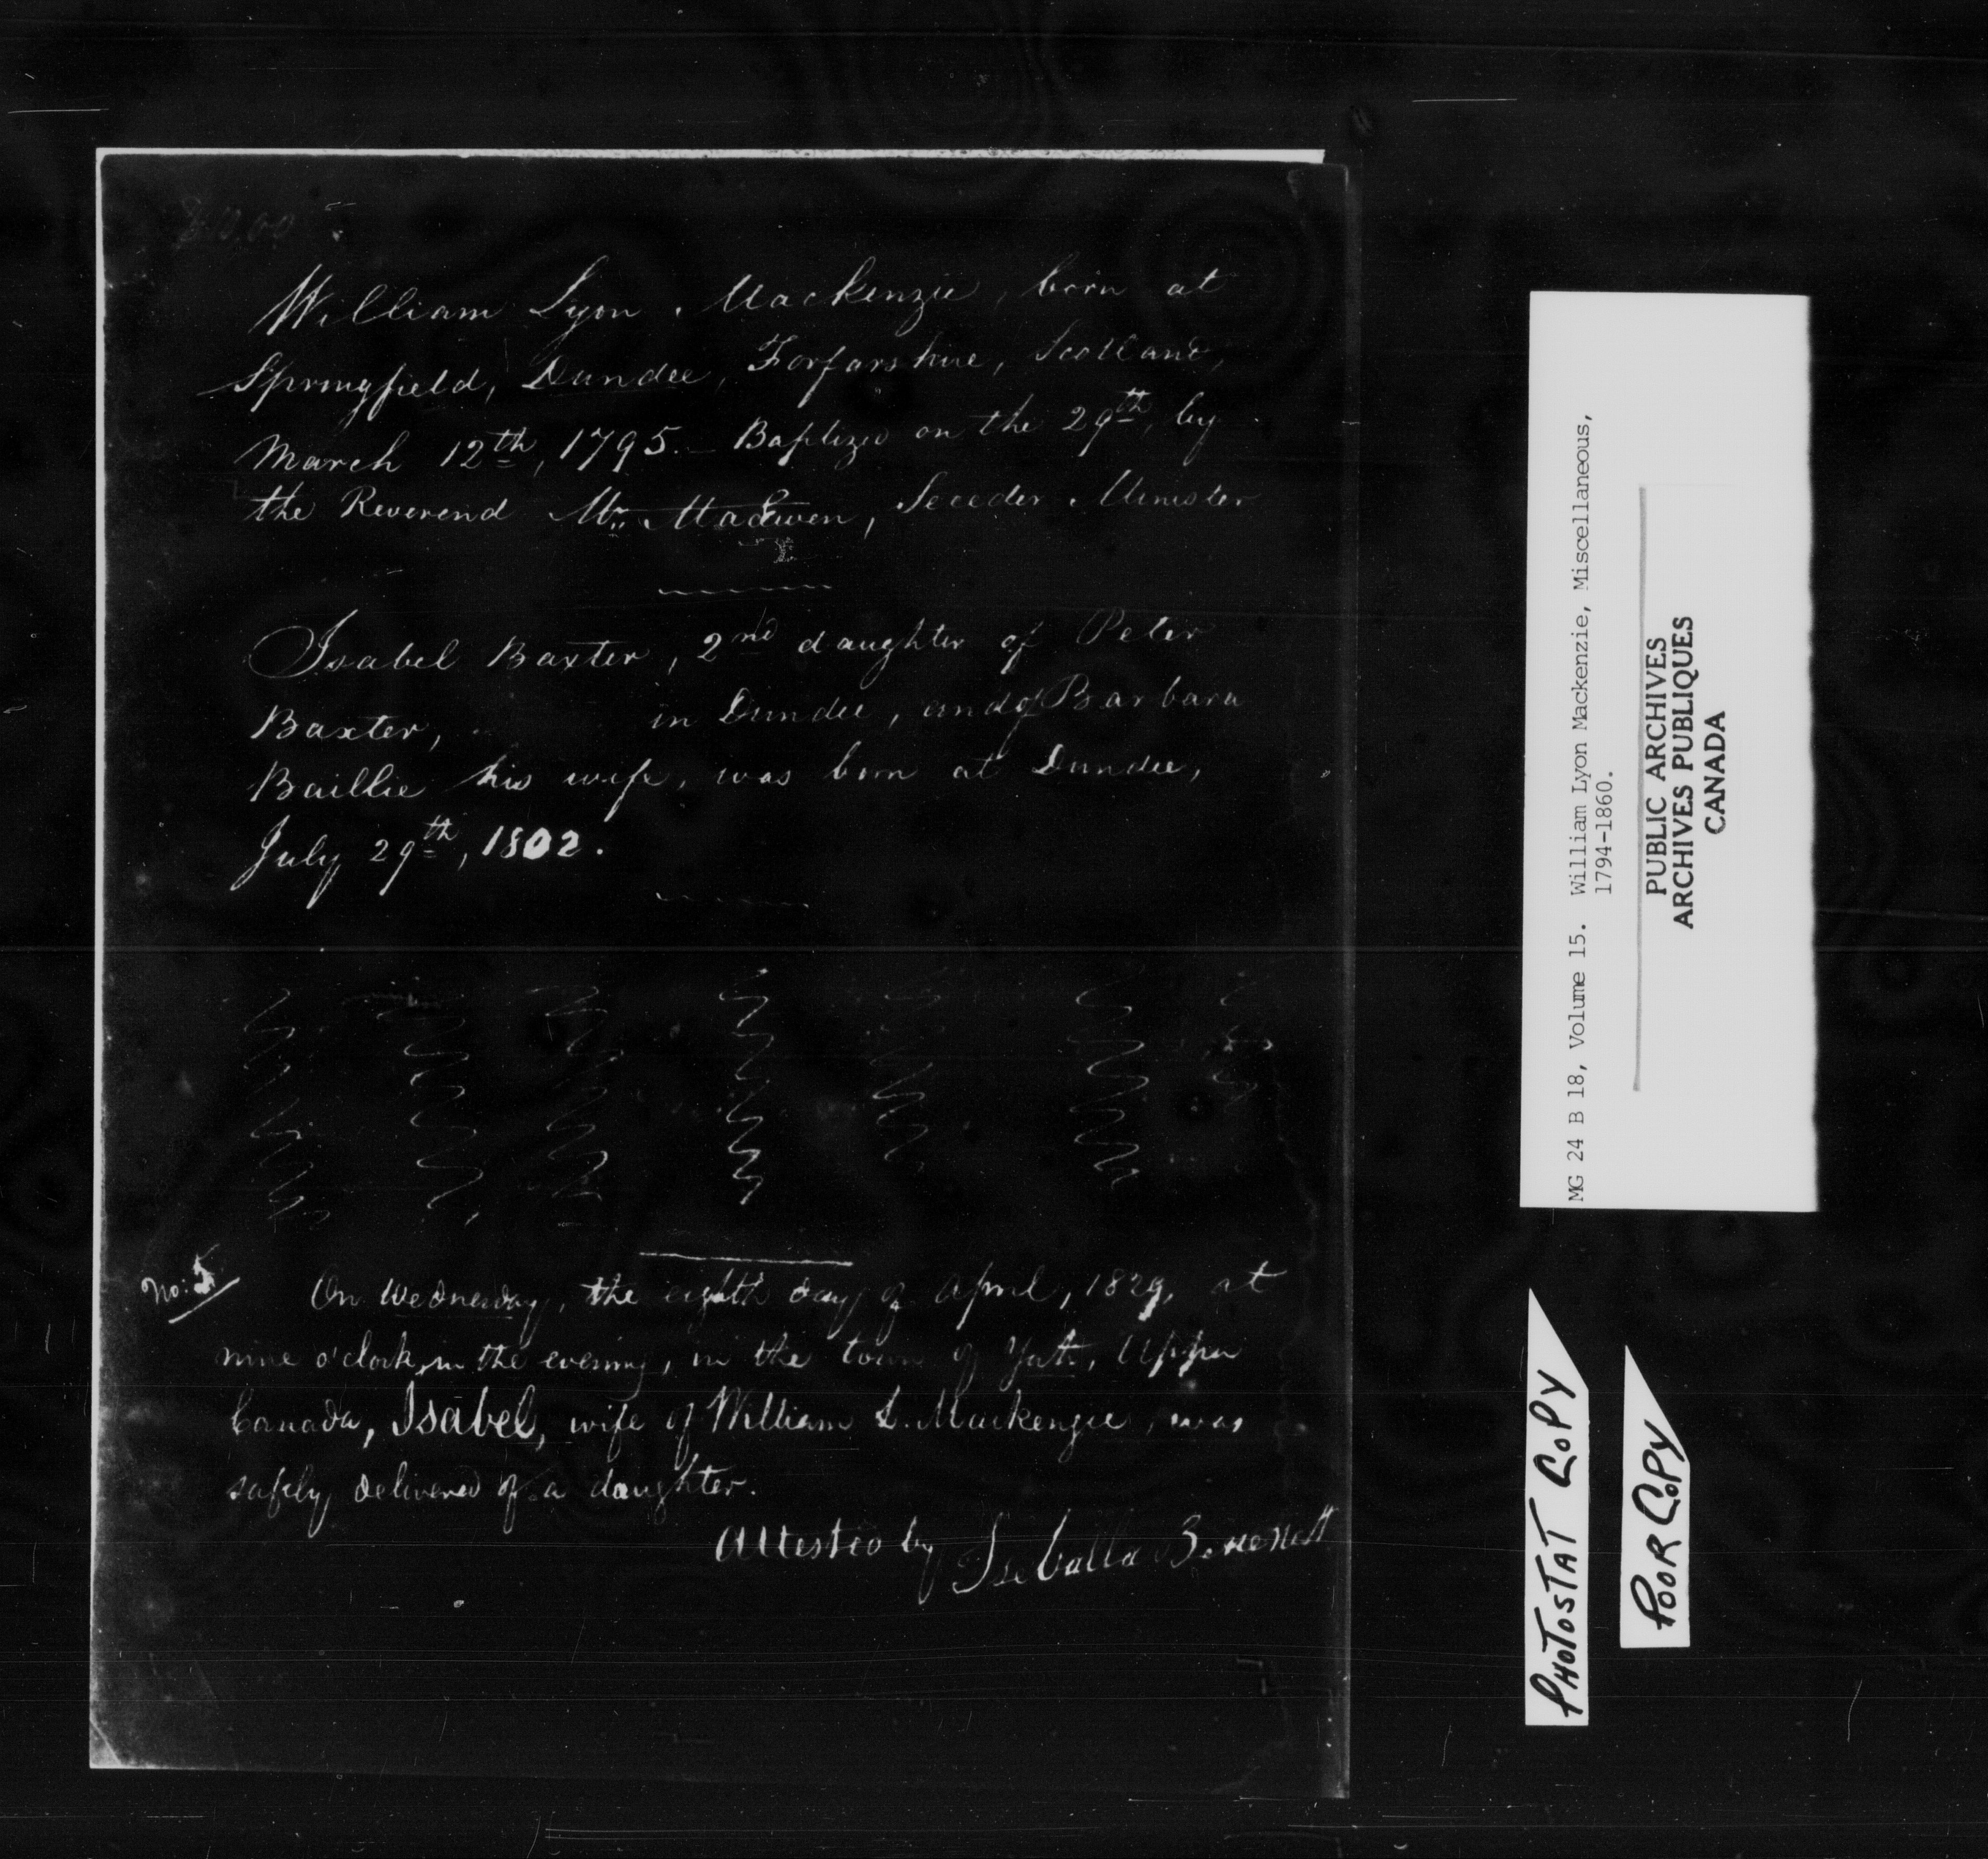 William Lyon Mackenzie, born at
Springfield, Dundee, Forfarshire, Scotland,
March 12th, 1795. – Baptized on the 29th, by
the Reverend Mr. MacEwen, Seceder Minister
Isabel Baxter, 2nd daughter of Peter
Baxter, in Dundee, and of Barbara
Baillie his wife, was born at Dundee,
July 29th, 1802.
No: 5.
On Wednesday, the eighth day of April, 1829, at
nine o'clock, in the evening, in the town of York, Upper
Canada, Isabel, wife of William L. Mackenzie, was
safely delivered of a daughter.
Attested by Isabella
MG 24 B 18, Volume 15. William Lyon Mackenzie, Miscellaneous,
1794-1860.
PUBLIC ARCHIVES
ARCHIVES PUBLIQUES
CANADA
PHOTOSTAT COPY
POOR COPY